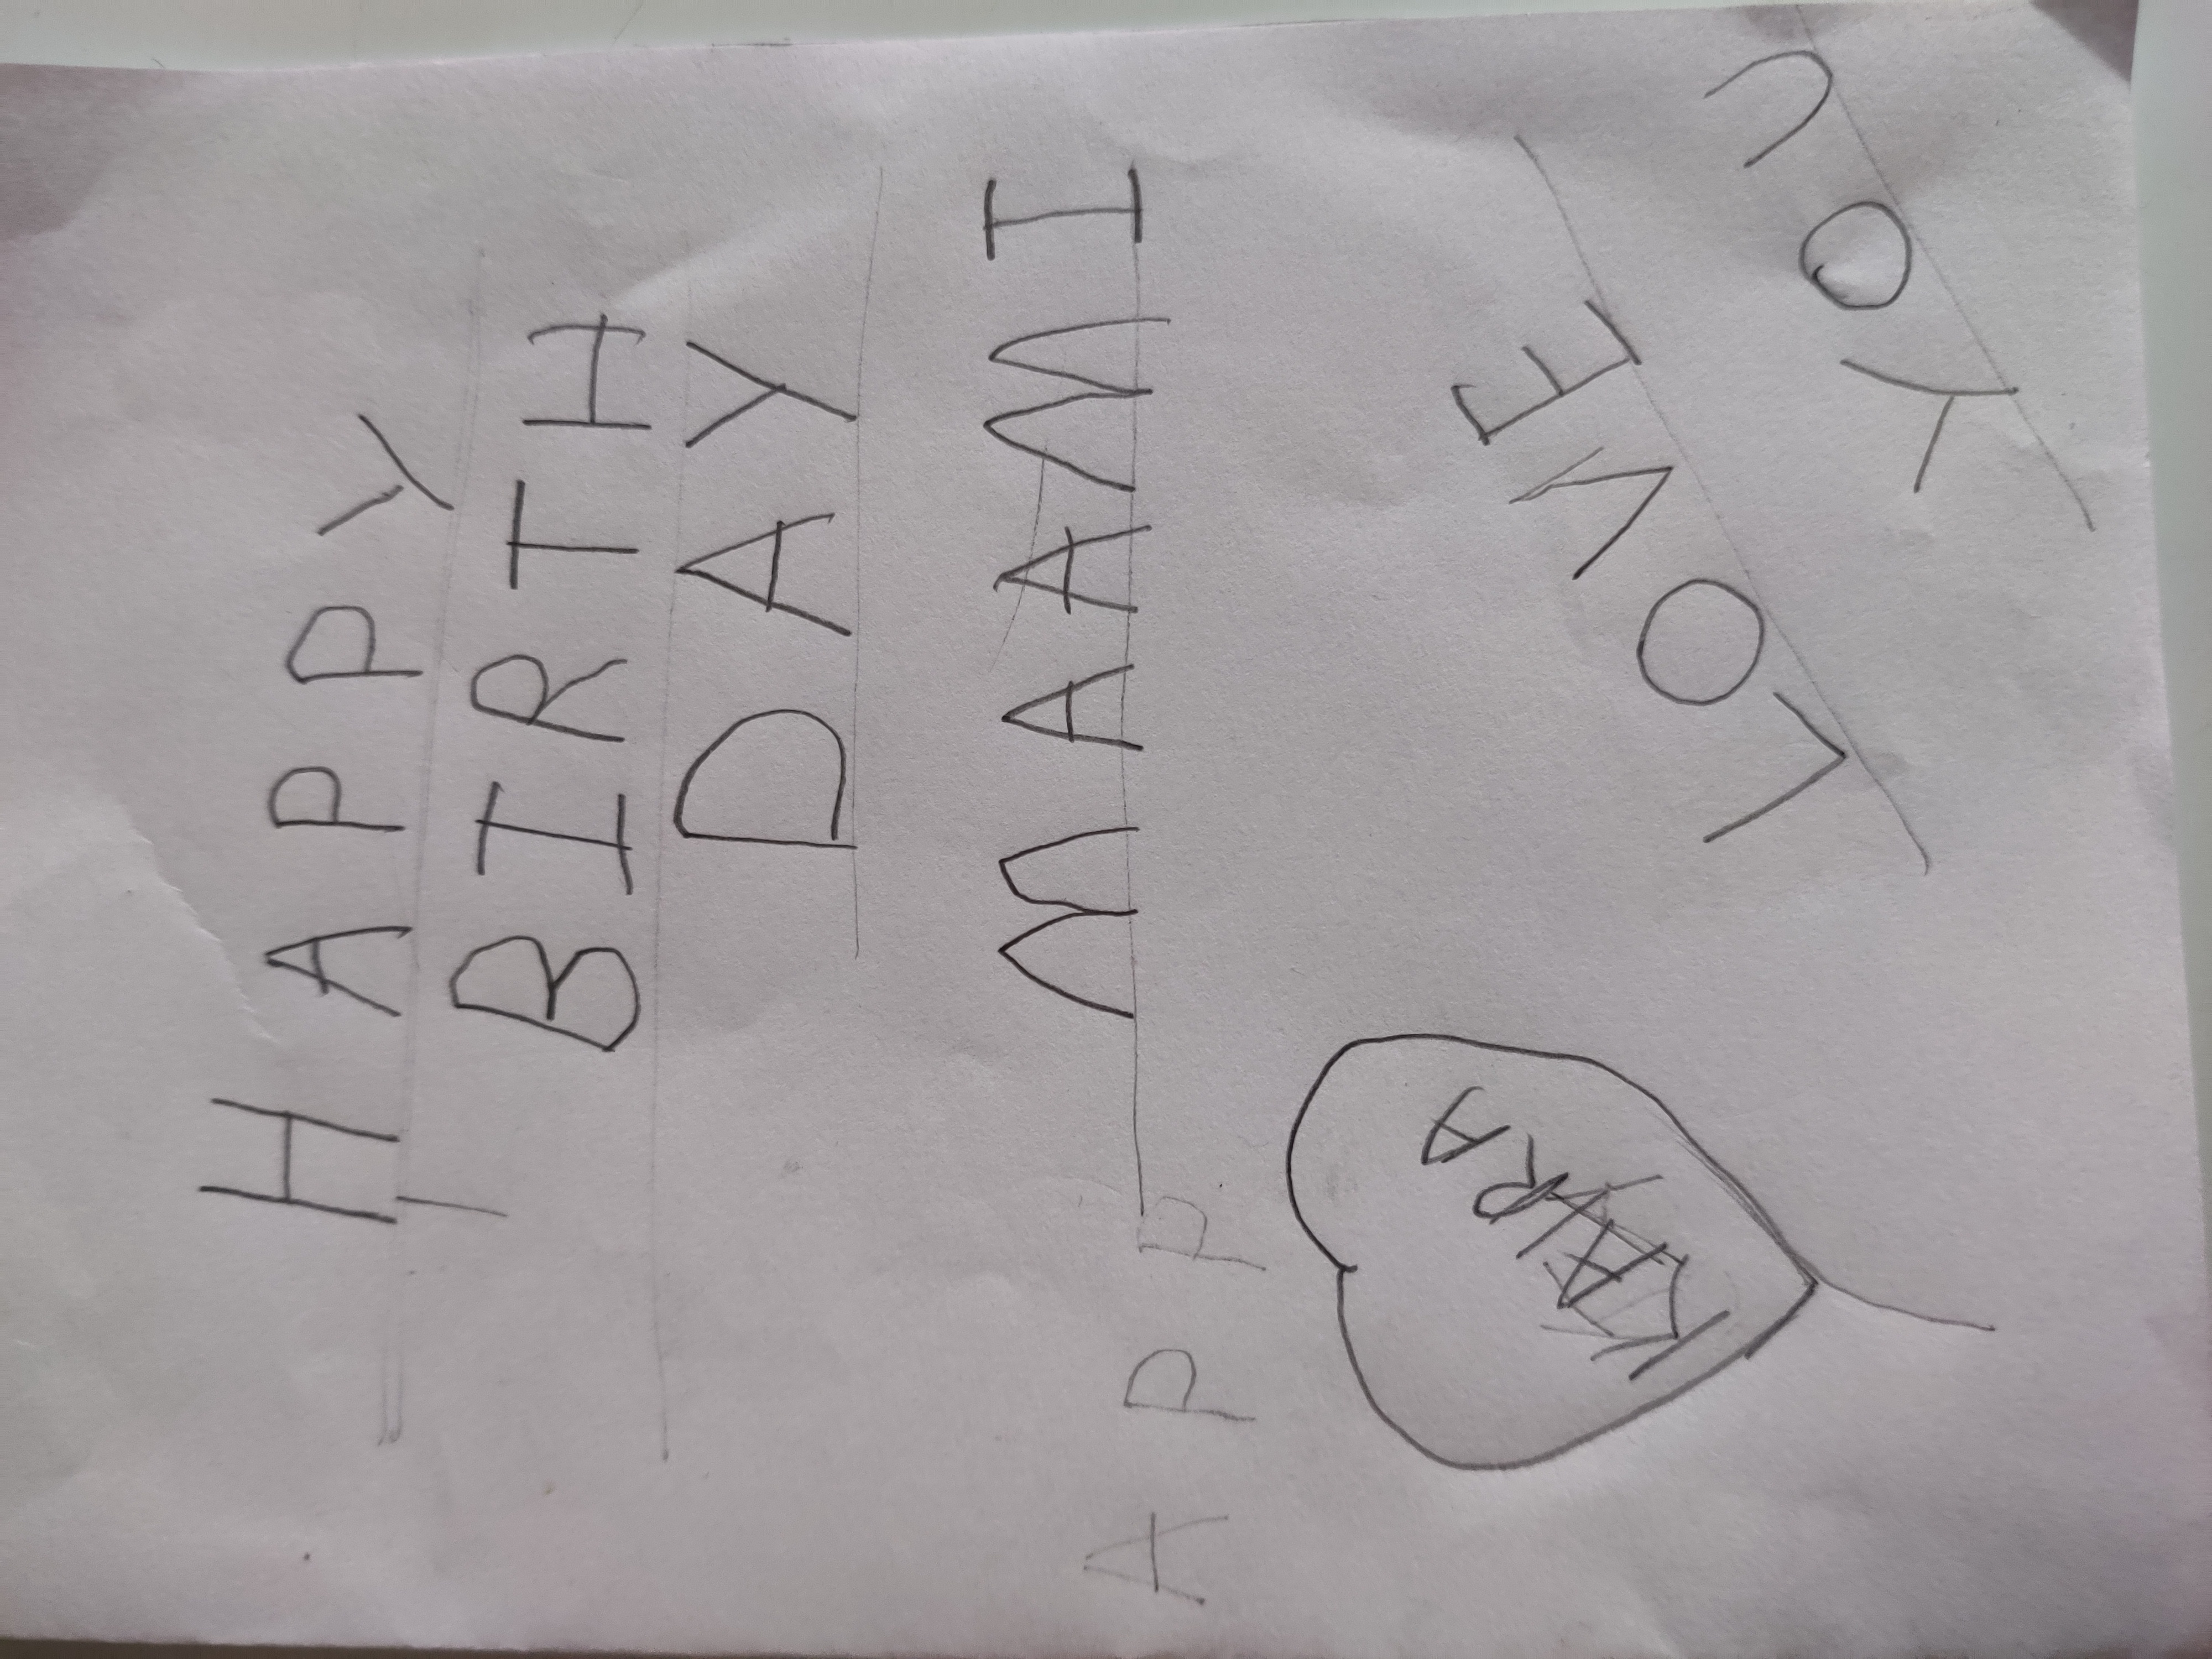 HAPPY
BIRTH
DAY
MAAMI
APP
KAIRA
LOVE
YOU